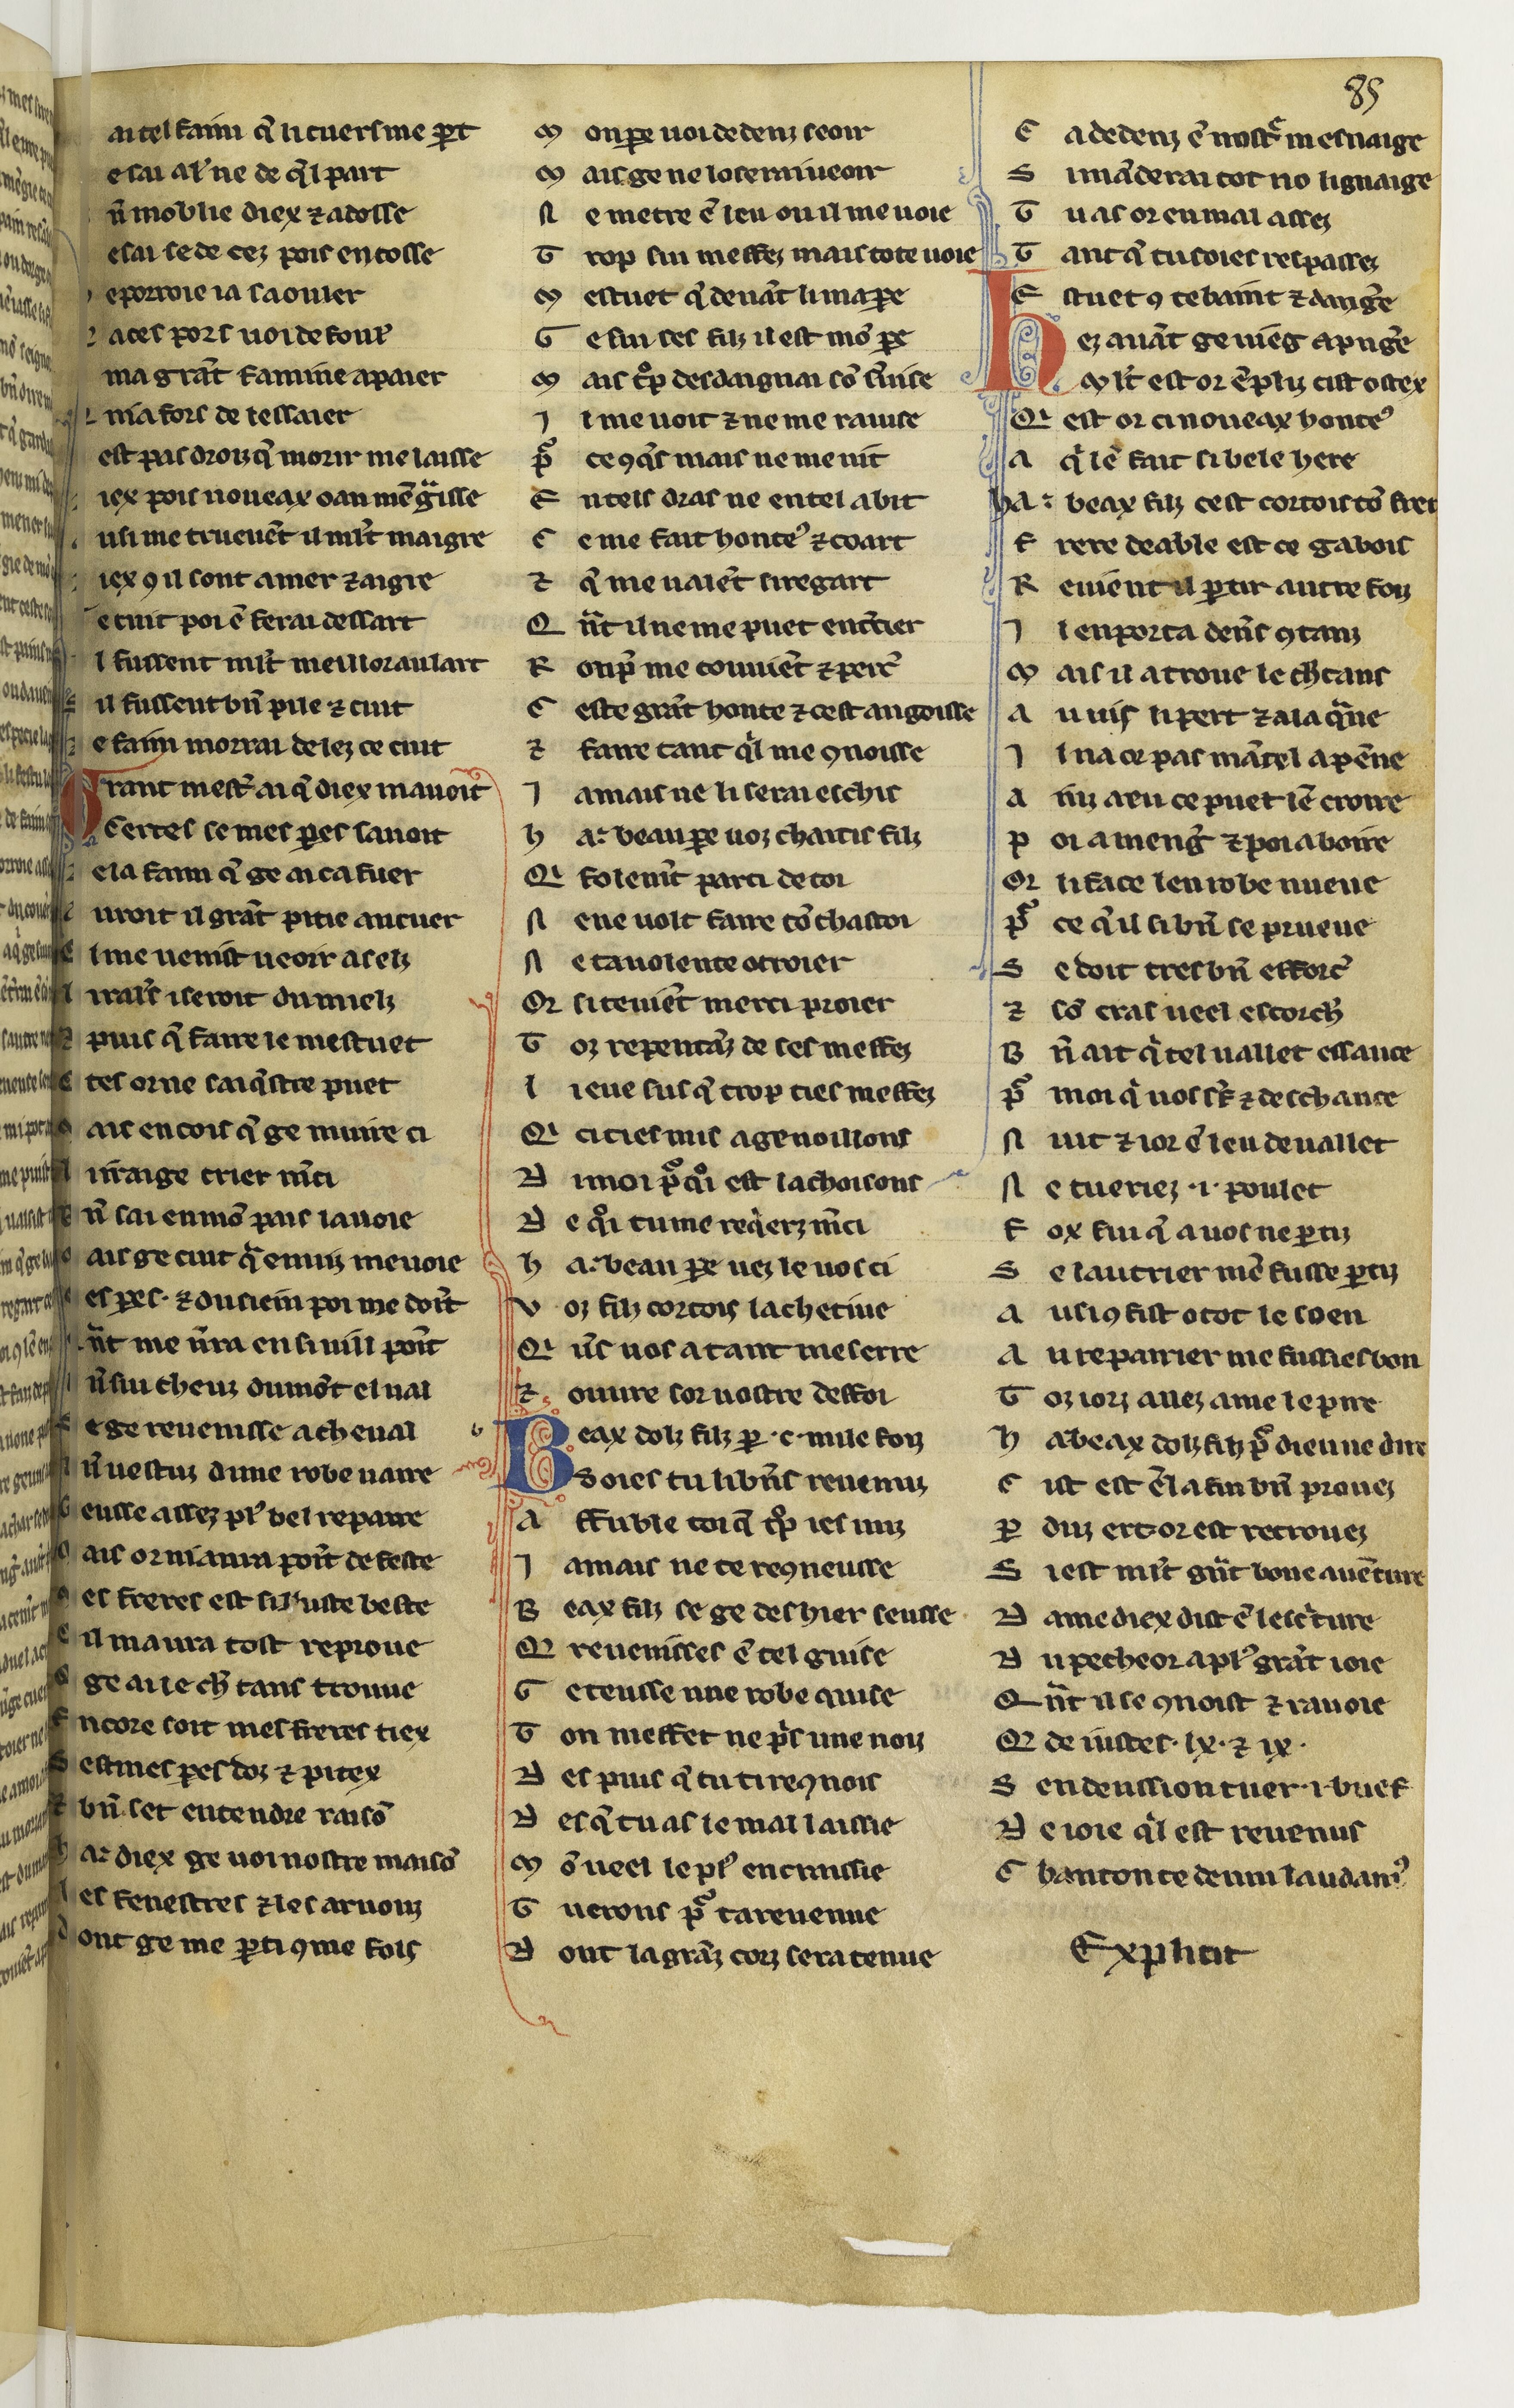 85
ai tel faim q̃ li cuers me p̱t
e sai al'ne de q̃l part
n̄ moblie diex ⁊ adosse
e sai se de cez pois en tosse
e porroie ia saouler
aces pors uoi defoul'
ma grãt famine apaier
nia fors de lessaier
est pas drois q̃ morir me laisse
iex pois noueax oan mẽgͣisse
usi me trueuẽt il ml't maigre
iex ꝯ il sont amer ⁊ aigre
e cuit poi ẽ ferai dessart
l fussent ml't meillor au lart
il fussent bñ pile ⁊ cuit
e faim morrai delez ce cuit
Grant mest' ai q̃ diex mauoit
Certes se mes p̱es sauoit
e la faim q̃ ge ai ca fuer
uroit il grãt pitie au cuer
l me uenist ueoir as elz
irals iseroit du mielz
puis q̃ faire le mestuet
tes or ne sai q̃ estre puet
ais encois q̃ ge muire ci
l iraige crier m̃ci
n̄ sai en mõ pais la uoie
ais ge cuit q̃ enuiz me uoie
es p̱es. ⁊ ou ciein poi me doĩt
ñt me ũra en si uill point
n̄ sui cheuz du mõt el ual
e ge reuenisse a cheual
n̄ uestuz dune robe uaire
eusse assez pl' bel repaire
ais or ni aura poĩt de feste
es freres est si iuste beste
il maura tost reproue
ge ai le ch' tans trouue
ncore soit mes freres tiex
est mes p̱es doz ⁊ pitex
bñ set entendre raisõ
a: diex ge uoi nostre maisõ
es fenestres ⁊ les aruoiz
ont ge me p̱ti ꝯme fois
M on p̱e uoi dedenz seoir
M ais ge ne lo serai ueoir
N e metre ẽ leu ou il me uoie
T rop sui meffez mais tote uoie
M estuet q̃ deuãt li mape
G e sui ses filz il est mõ p̱e
M ais t'op desdaignai sõ s'uise
I l me uoit ⁊ ne me rauise
P̱ ce ꝯq̃s mais ne me uit
E n tels dras ne en tel abit
C e me fait honte' ⁊ coart
⁊ q̃ me uaiẽt si regart
Q ñt il ne me puet encĩer
R onp' me couuiẽt ⁊ perc'
C este grãt honte ⁊ cest angoisse
⁊ faire tant q̃l me ꝯnoisse
I amais ne li serai eschis
H a: beau p̱e uoz chaitis filz
Q i folemẽt parti de toi
N e ne uolt faire tõ chastoi
N e ta uolente otroier
Or si te uiẽt merci proier
T oz repentãz de ses meffez
L ieue sus q̃ trop ties meffez
Q i ci ties mis agenoillons
D i moi p̱ q̃i est lachoisons
D e q̃i tu me req̃erz m̃ci
H a: beau p̱e uez le uos ci
V oz filz cortois la chetiue
Q i ũs uos a tant mes erre
⁊ ouure sor uostre deffoi
Beax dolz filz p̱ .c. mile foiz
Soies tu li bñs reuenuz
A ffuble toi q̃ t'op ies nuz
I amais ne te reꝯneusse
B eax filz se ge des hier seusse
Q reuenisses ẽ tel guise
G e teusse une robe quise
T on meffet ne p̱is une noiz
D es puis q̃ tu ti reꝯnois
D es q̃ tu as le mal laissie
M õ ueel le pl' encraissie
T uerons p̱ ta reuenue
D ont la grãz corz sera tenue
C a dedenz ẽ nost' mesnaige
S i mãderai tot no lignaige
T u as or eu mal assez
T ant q̃ tu soies respassez
E stuet ꝯ te baint ⁊ dang'e
Hez auãt ge uieg apug'e
M l't est or ẽpliz cist ostex
Q i est or ci noueax hontes
A q̃ lẽ fait si bele here
ha: beax filz cest cortois tõ frer
F rere deable est ce gabois
R euiẽnt il p̱tir autre foiz
I l enporta deñs ꝯtanz
M ais il a troue le ch' tans
A u uis li pert ⁊ a la q̃ne
I l na or pas mãtel a pẽne
A niz a eu ce puet lẽ croire
P oi a meng' ⁊ poi a boire
Or li face len robe nueue
P̱ ce q̃ il si bñ se prueue
S e doit tres bñ efforc'
⁊ sõ cras ueel escorch'
B ñ ait q̃ tel uallet essauce
P̱ moi q̃ uos s't ⁊ deschauce
N uit ⁊ ior ẽ leu de uallet
N e tueriez .i. poulet
F ox fui q̃ a uos ne p̱tiz
S e lautrier mẽ fusse p̱tiz
A usi ꝯ fist o tot le soen
A u repairier me fussies bon
T oz iorz auez ame le pire
H a: beax dolz filz p̱ dieu ne dire
C ist est ẽ la fin bñ prouez
P diz ert or est retrouez
S i est ml't gr̃t bone auẽture
D ame diex dist ẽ lesc'ture
D u pecheor a pl' grãt ioie
Q ñt il se ꝯnoist ⁊ rauoie
Q de iustes .lx. ⁊ ix.
S en deussion tuer .i. buef
D e ioie q̃l est reuenus
C hanton te deum laudam'
Explicit